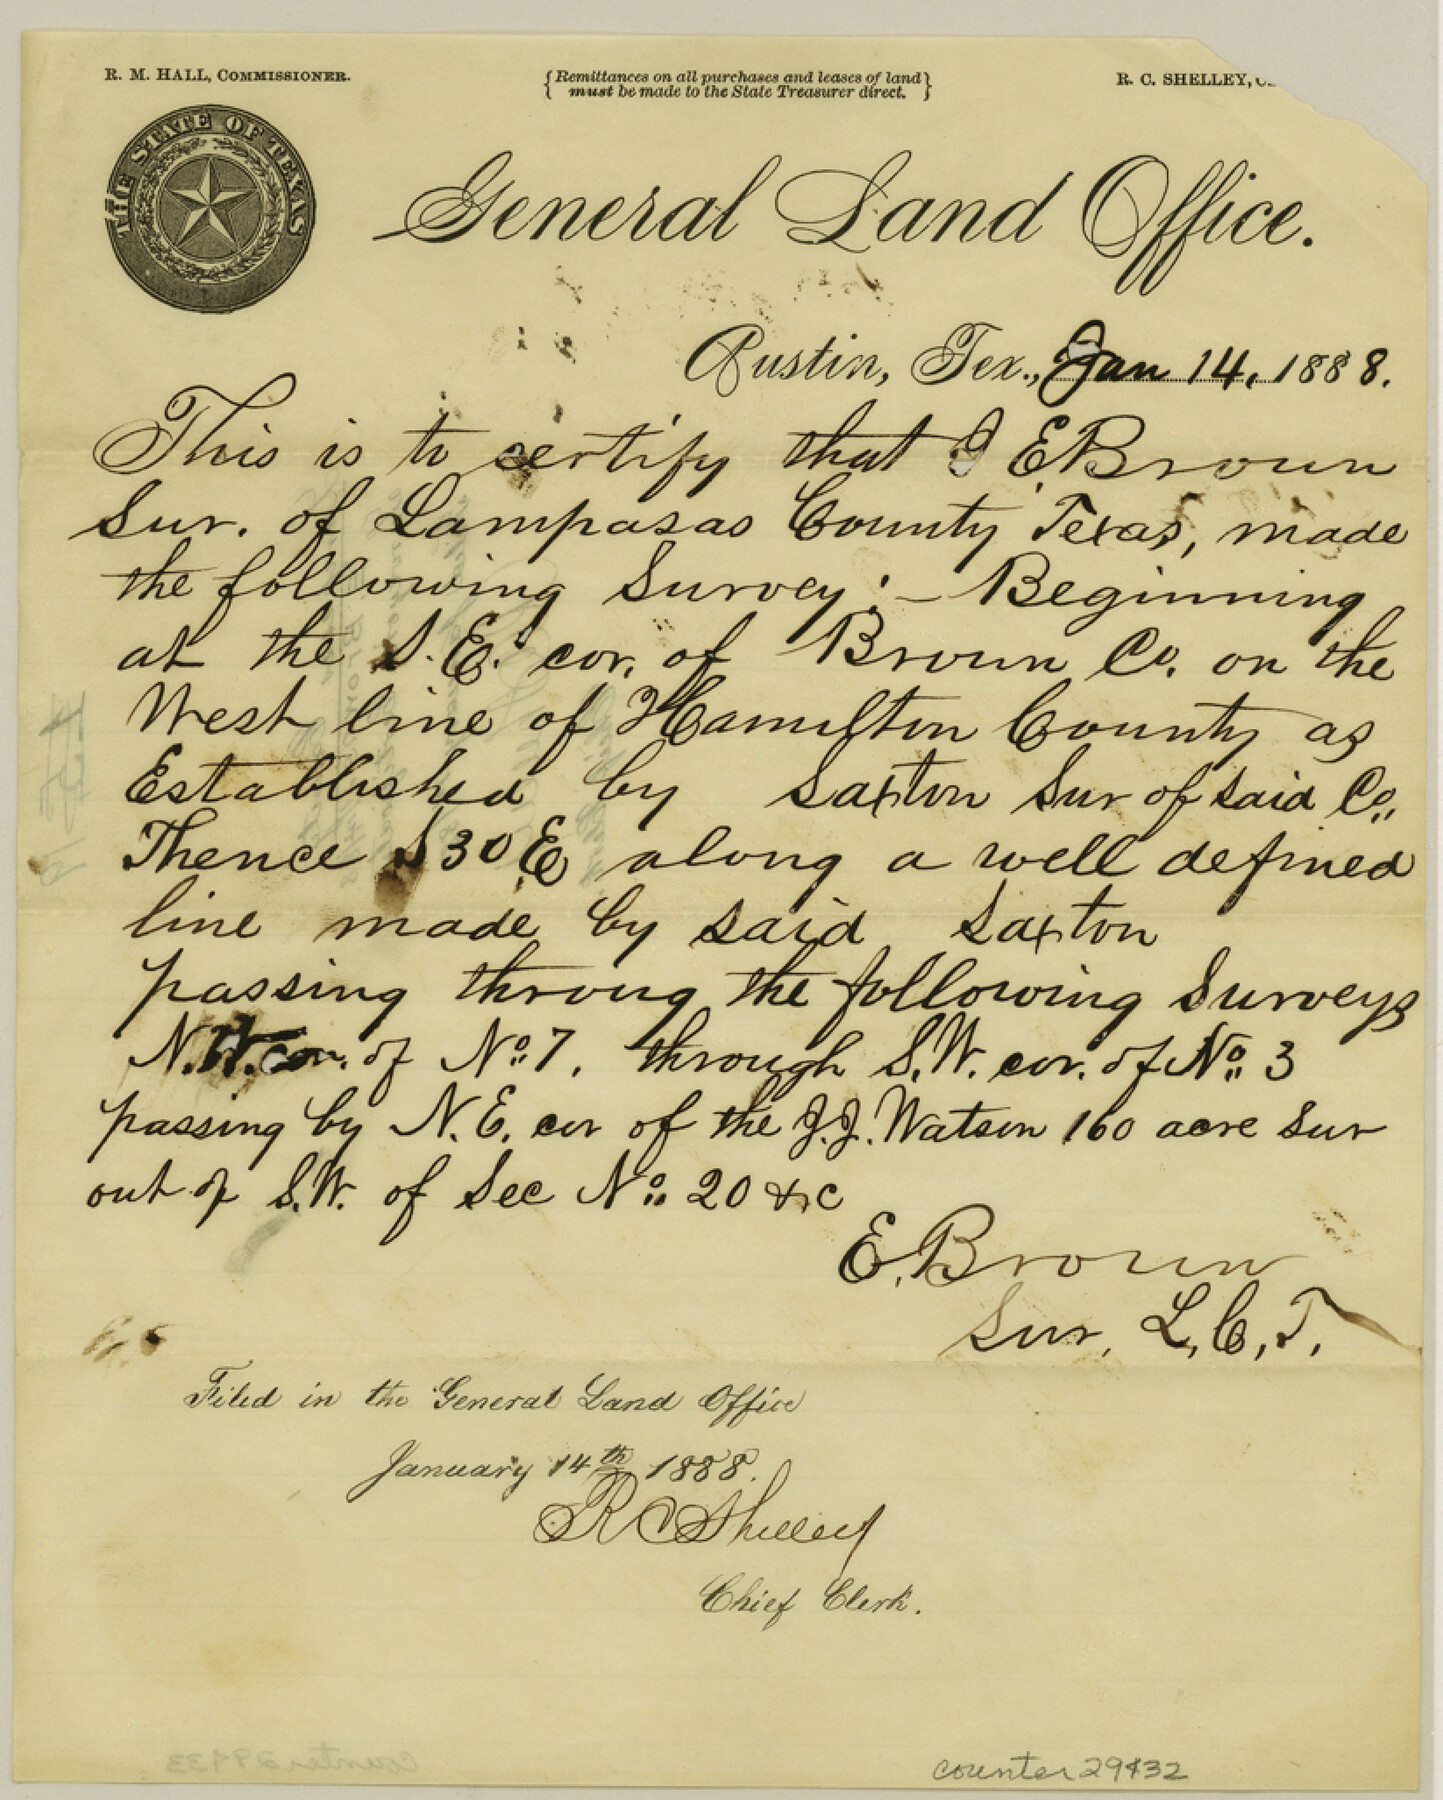 R. M. HALL, COMMISSIONER.
{Remittances on all purchases and leases of land
must be made to the State Treasurer direct.}
R. C. SHELLEY, C
THE STATE OF TEXAS
General Land Office.
Austin, Tex., Jan 14, 1888.
This is to certify that I E Brown
Sur. of Lampasas County Texas, made
the following Survey: — Beginning
at the S.E. cor. of Brown Co. on the
West line of Hamilton County as
Established by Saxton Sur of said Co.,
Thence S 30 E along a well defined
line made by said Saxton
passing throug the following Surveys
N.W. cor. of No. 7, through S.W. cor. of No. 3
passing by N.E. cor of the J.J. Watson 160 acre Sur
out of S.W. of Sec No. 20 &c
E. Brown
Sur, L, C, T.
Filed in the General Land Office
January 14th 1888.
R C Shelley
Chief Clerk.
counter 29432